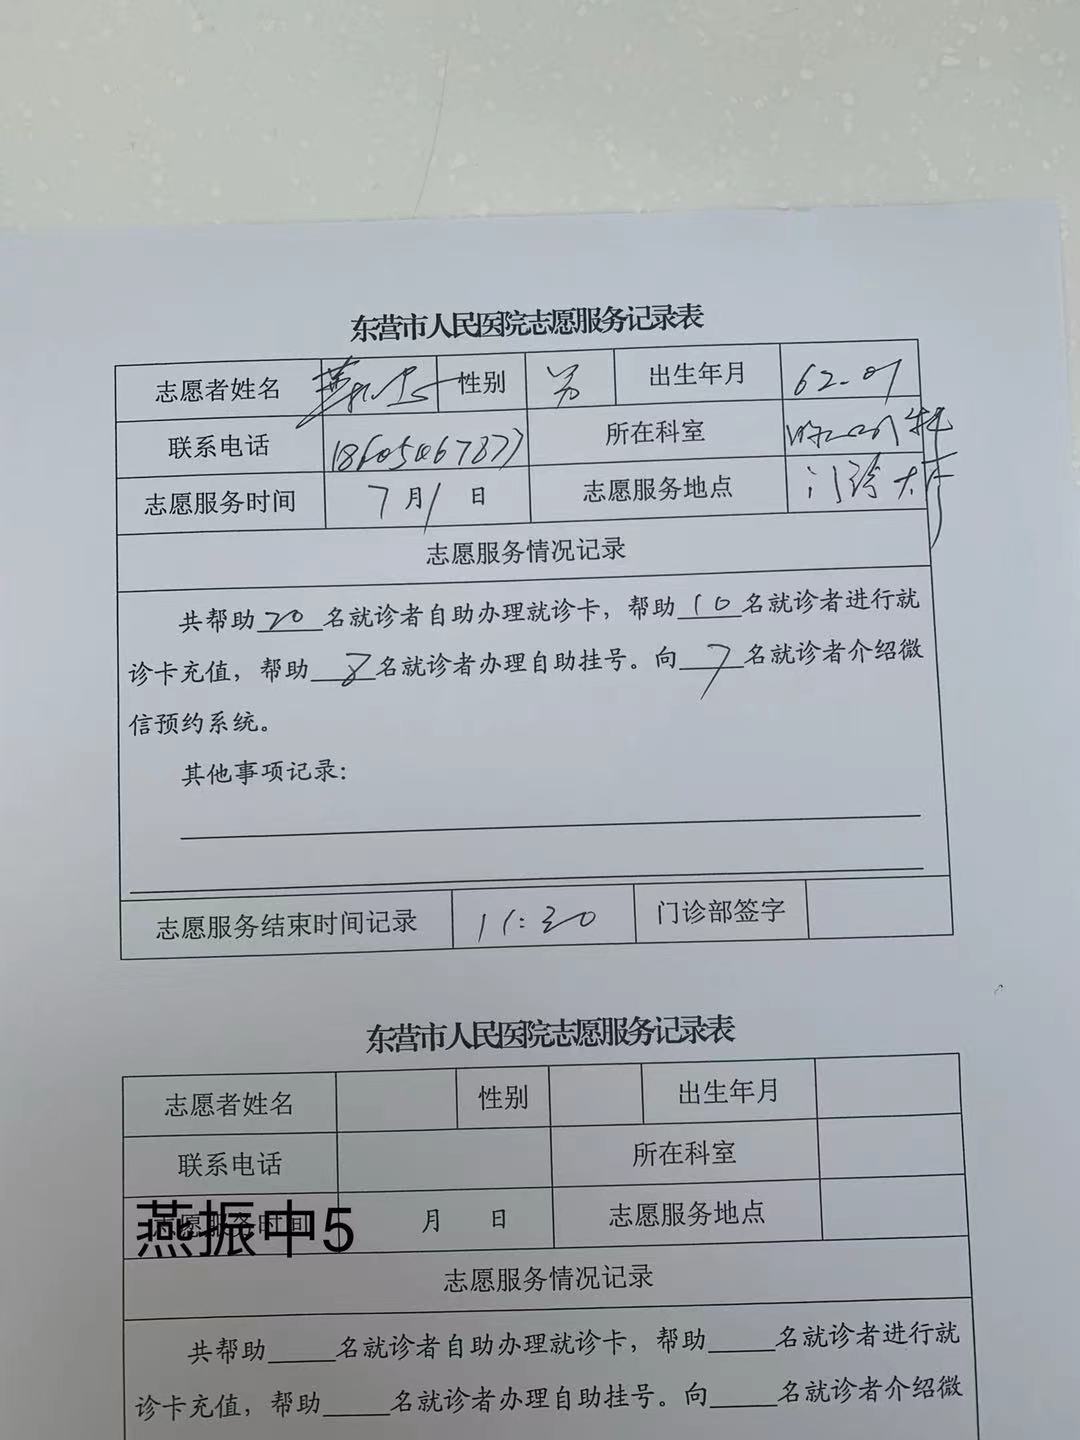 东营市人民医院志愿服务记录表
志愿者姓名 性别 男 出生年月 62-01
联系电话 所在科室
志愿服务时间 7月1日 志愿服务地点 门诊大厅
志愿服务情况记录
共帮助20名就诊者自助办理就诊卡，帮助10名就诊者进行就
诊卡充值，帮助8名就诊者办理自助挂号。向7名就诊者介绍微
信预约系统。
其他事项记录：
志愿服务结束时间记录 11:30 门诊部签字
东营市人民医院志愿服务记录表
志愿者姓名 性别 出生年月
联系电话 所在科室
志愿服务时间 月 日 志愿服务地点
燕振中5
志愿服务情况记录
共帮助_____名就诊者自助办理就诊卡，帮助_____名就诊者进行就
诊卡充值，帮助_____名就诊者办理自助挂号。向_____名就诊者介绍微